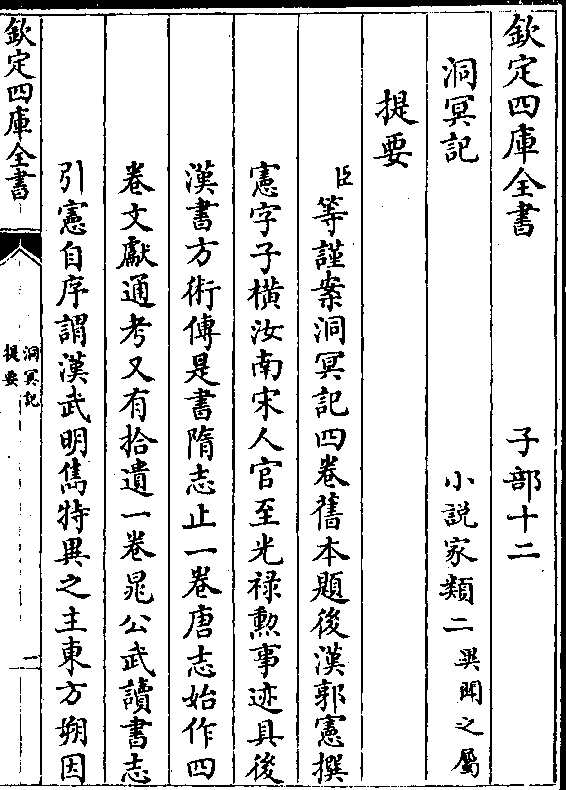 欽定四庫全書 子部十二
洞冥記 小說家類二 異聞之屬
提要
臣等謹案洞冥記四卷舊本題後漢郭憲撰
憲字子橫汝南宋人官至光祿勲事迹具後
漢書方術傳是書隋志止一卷唐志始作四
卷文獻通考又有拾遺一卷晁公武讀書志
引憲自序謂漢武明雋特異之主東方朔因
欽定四庫全書
洞冥記
提要
一